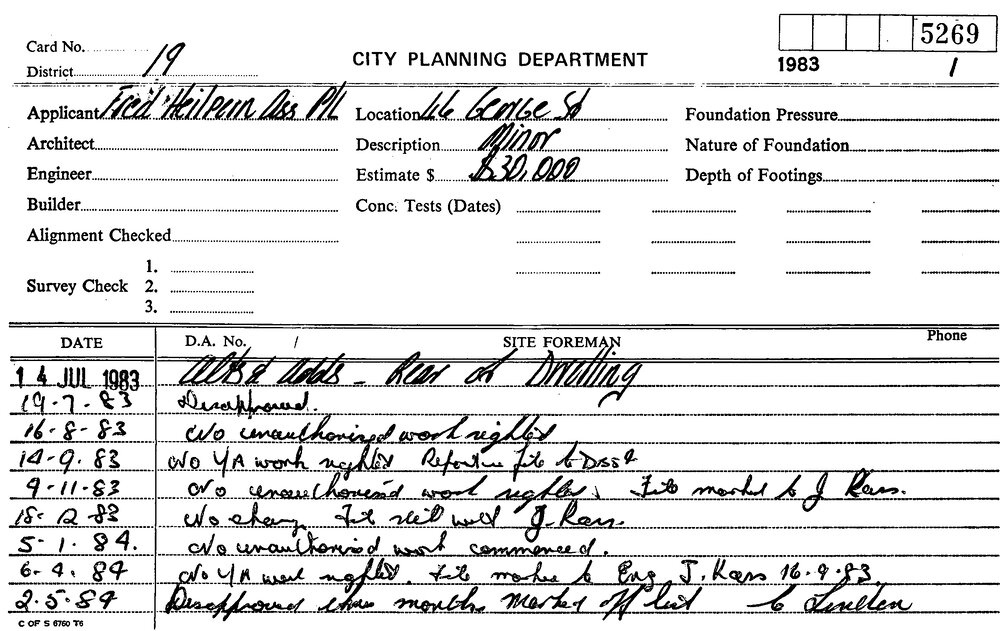 5269
Card No.
CITY PLANNING DEPARTMENT
1983 1
District 19
Applicant Fred Heilpern Ass P/L Location 46 George St Foundation Pressure
Architect Description Minor Nature of Foundation
Engineer Estimate $ $30,000 Depth of Footings
Builder Conc. Tests (Dates)
Alignment Checked
1.
Survey Check 2.
3.
DATE D.A. No. / SITE FOREMAN Phone
14 JUL 1983 Alts & Adds - Rear of Dwelling
19-7-83 Disapproved.
16-8-83 No unauthorised work sighted
14-9-83 No U/A work sighted Report file to
9-11-83 No unauthorised work sighted, File marked to J
15-12-83 No change File still with J.
5-1-84. No unauthorised work commenced.
6-4-84 No U/A work sighted. File marked to Eng J. 16-9-83.
2-5-84 Disapproved three months marked off list to
C OF S 6760 T6